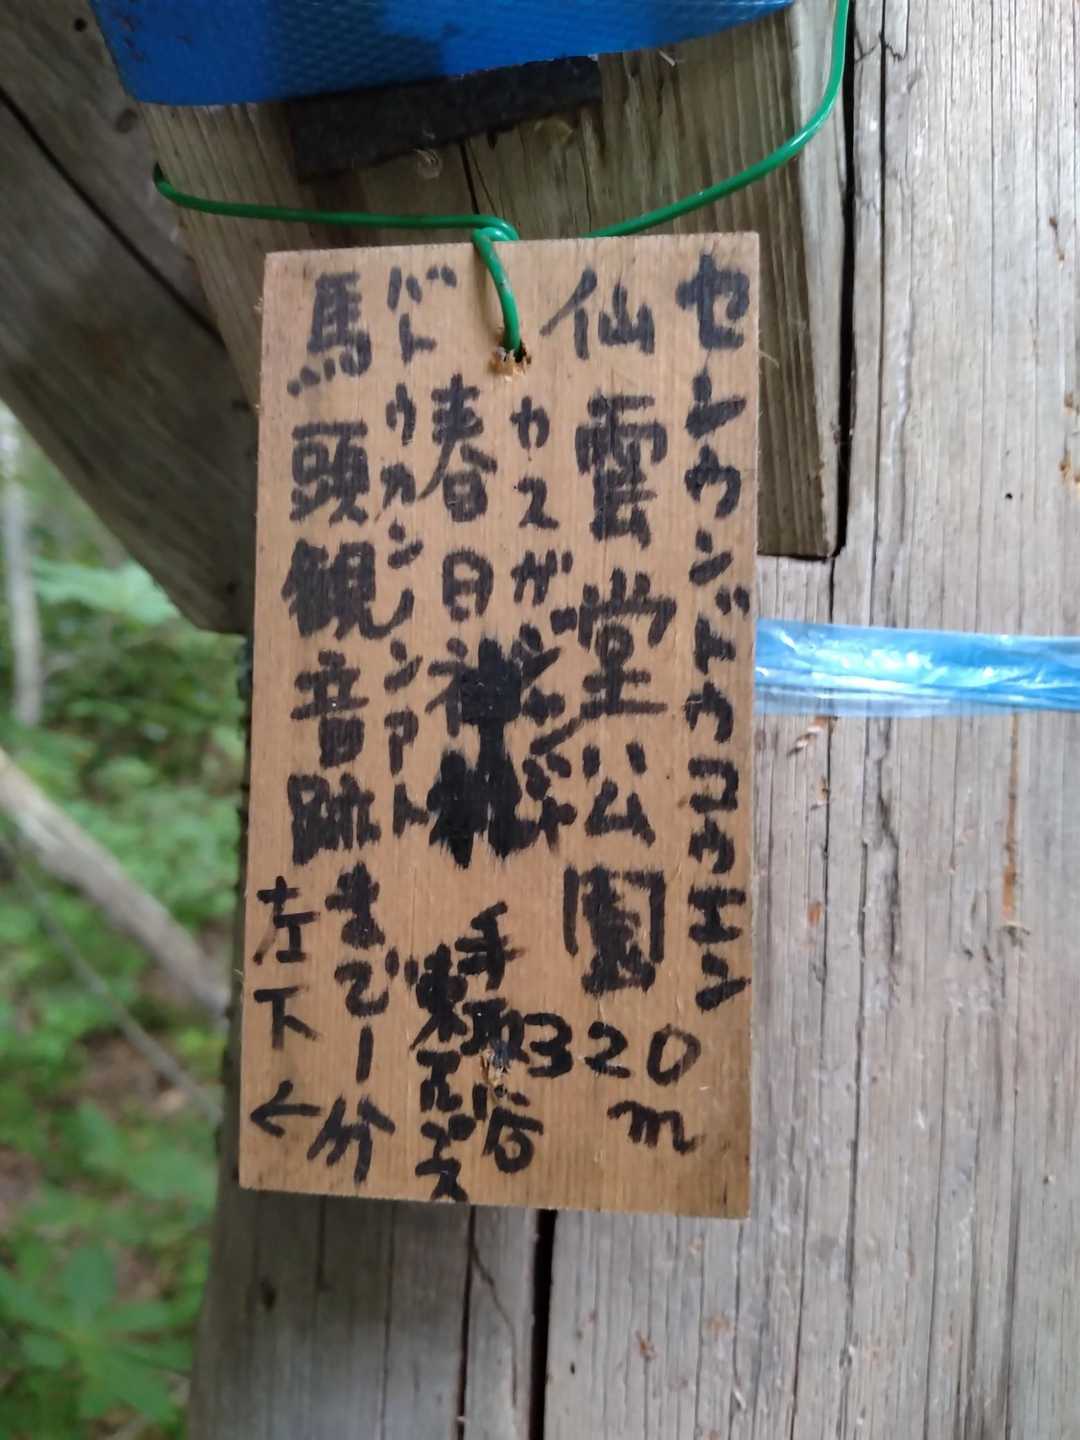 センウンドウコウエン
仙雲堂公園 320m
カスガジンジャ
春日神社
手取谷
東アルプス
バトウカンノンアト
馬頭観音跡まで一分
左下←